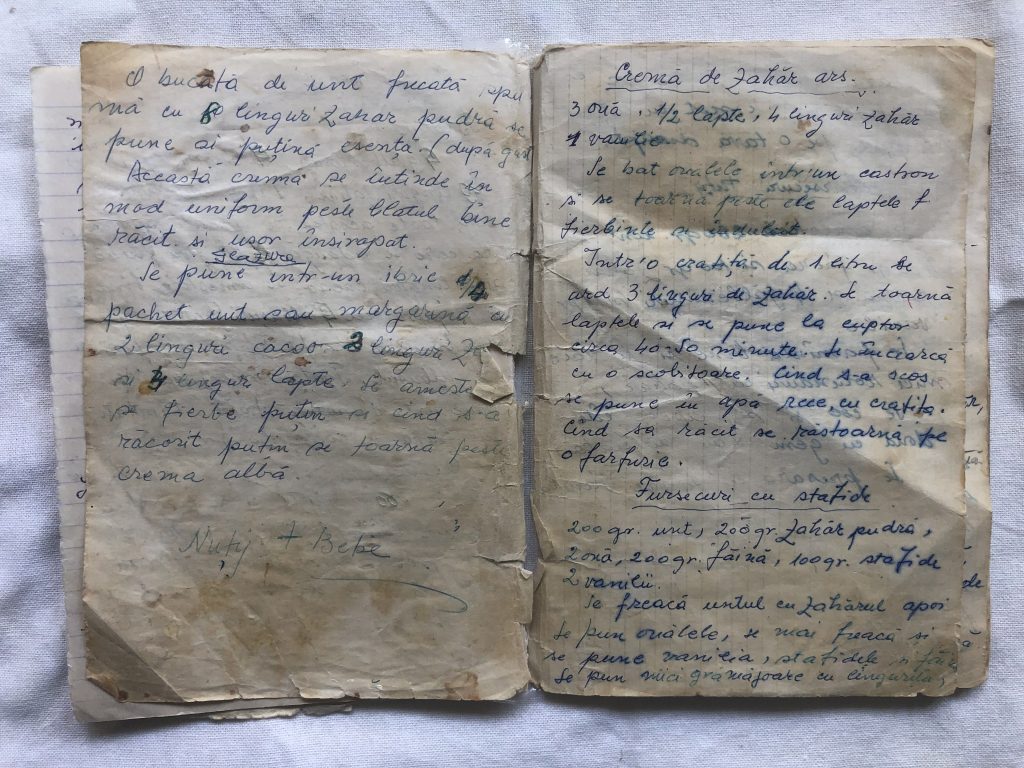 O bucată de unt frecată spu
mă cu 8 linguri zahar pudră se
pune si puțină esență. (după gust
Această cremă se întinde în
mod uniform peste blatul bine
răcit si ușor însiropat.
Glazura
Se pune într-un ibric 1/2
pachet unt sau margarină cu
2 linguri cacao 3 linguri za
si 4 linguri lapte. Se ameste
se fierbe puțin si cind s-a
răcorit putin se toarnă peste
crema albă.
Nuți + Bebe
Cremă de zahăr ars.
3 ouă, 1/2 lapte, 4 linguri zahăr
1 vanilie
Se bat ouălele într-un castron
si se toarnă peste ele laptele f
fierbinte se îndulcit.
Într'o cratiță de 1 litru se
ard 3 linguri de zahăr. Se toarnă
laptele si se pune la cuptor
circa 40-50 minute. Se încearcă
cu o scobitoare. Cind s-a scos
se pune în apa rece cu cratița.
Cînd sa răcit se răstoarnă pe
o farfurie.
Fursecuri cu stafide
200 gr. unt, 200 gr. zahăr pudră,
2 ouă, 200 gr. făină, 100 gr. stafide
2 vanilii.
Se freacă untul cu zahărul apoi
se pun ouălele, se mai freacă si
se pune vanilia, stafidele si făina
Se pun mici grămăjoare cu lingurița,